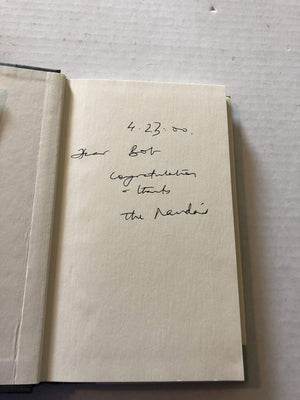 4.23.00.
Dear Bob
Congratulations
- thanks
the